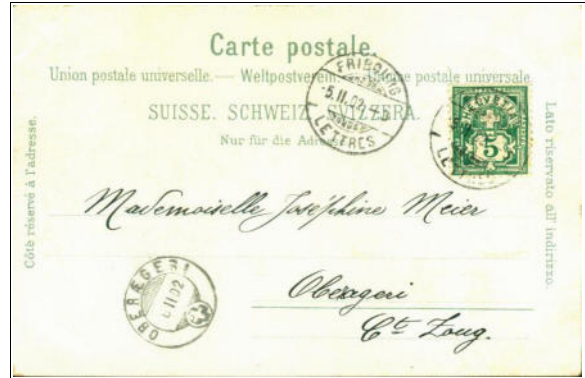 Carte postale.
Union postale universelle. — Weltpostverein. — Unione postale universale
SUISSE. SCHWEIZ. SVIZZERA.
Nur für die Adresse
Côté réservé à l'adresse.
Lato riservato all' indirizzo.
FRIBOURG
5.II.02
LETTRES
HELVETIA
5
Mademoiselle Joséphine Meier
Oberageri
Ct. Zoug.
OBERÆGERI
II.02